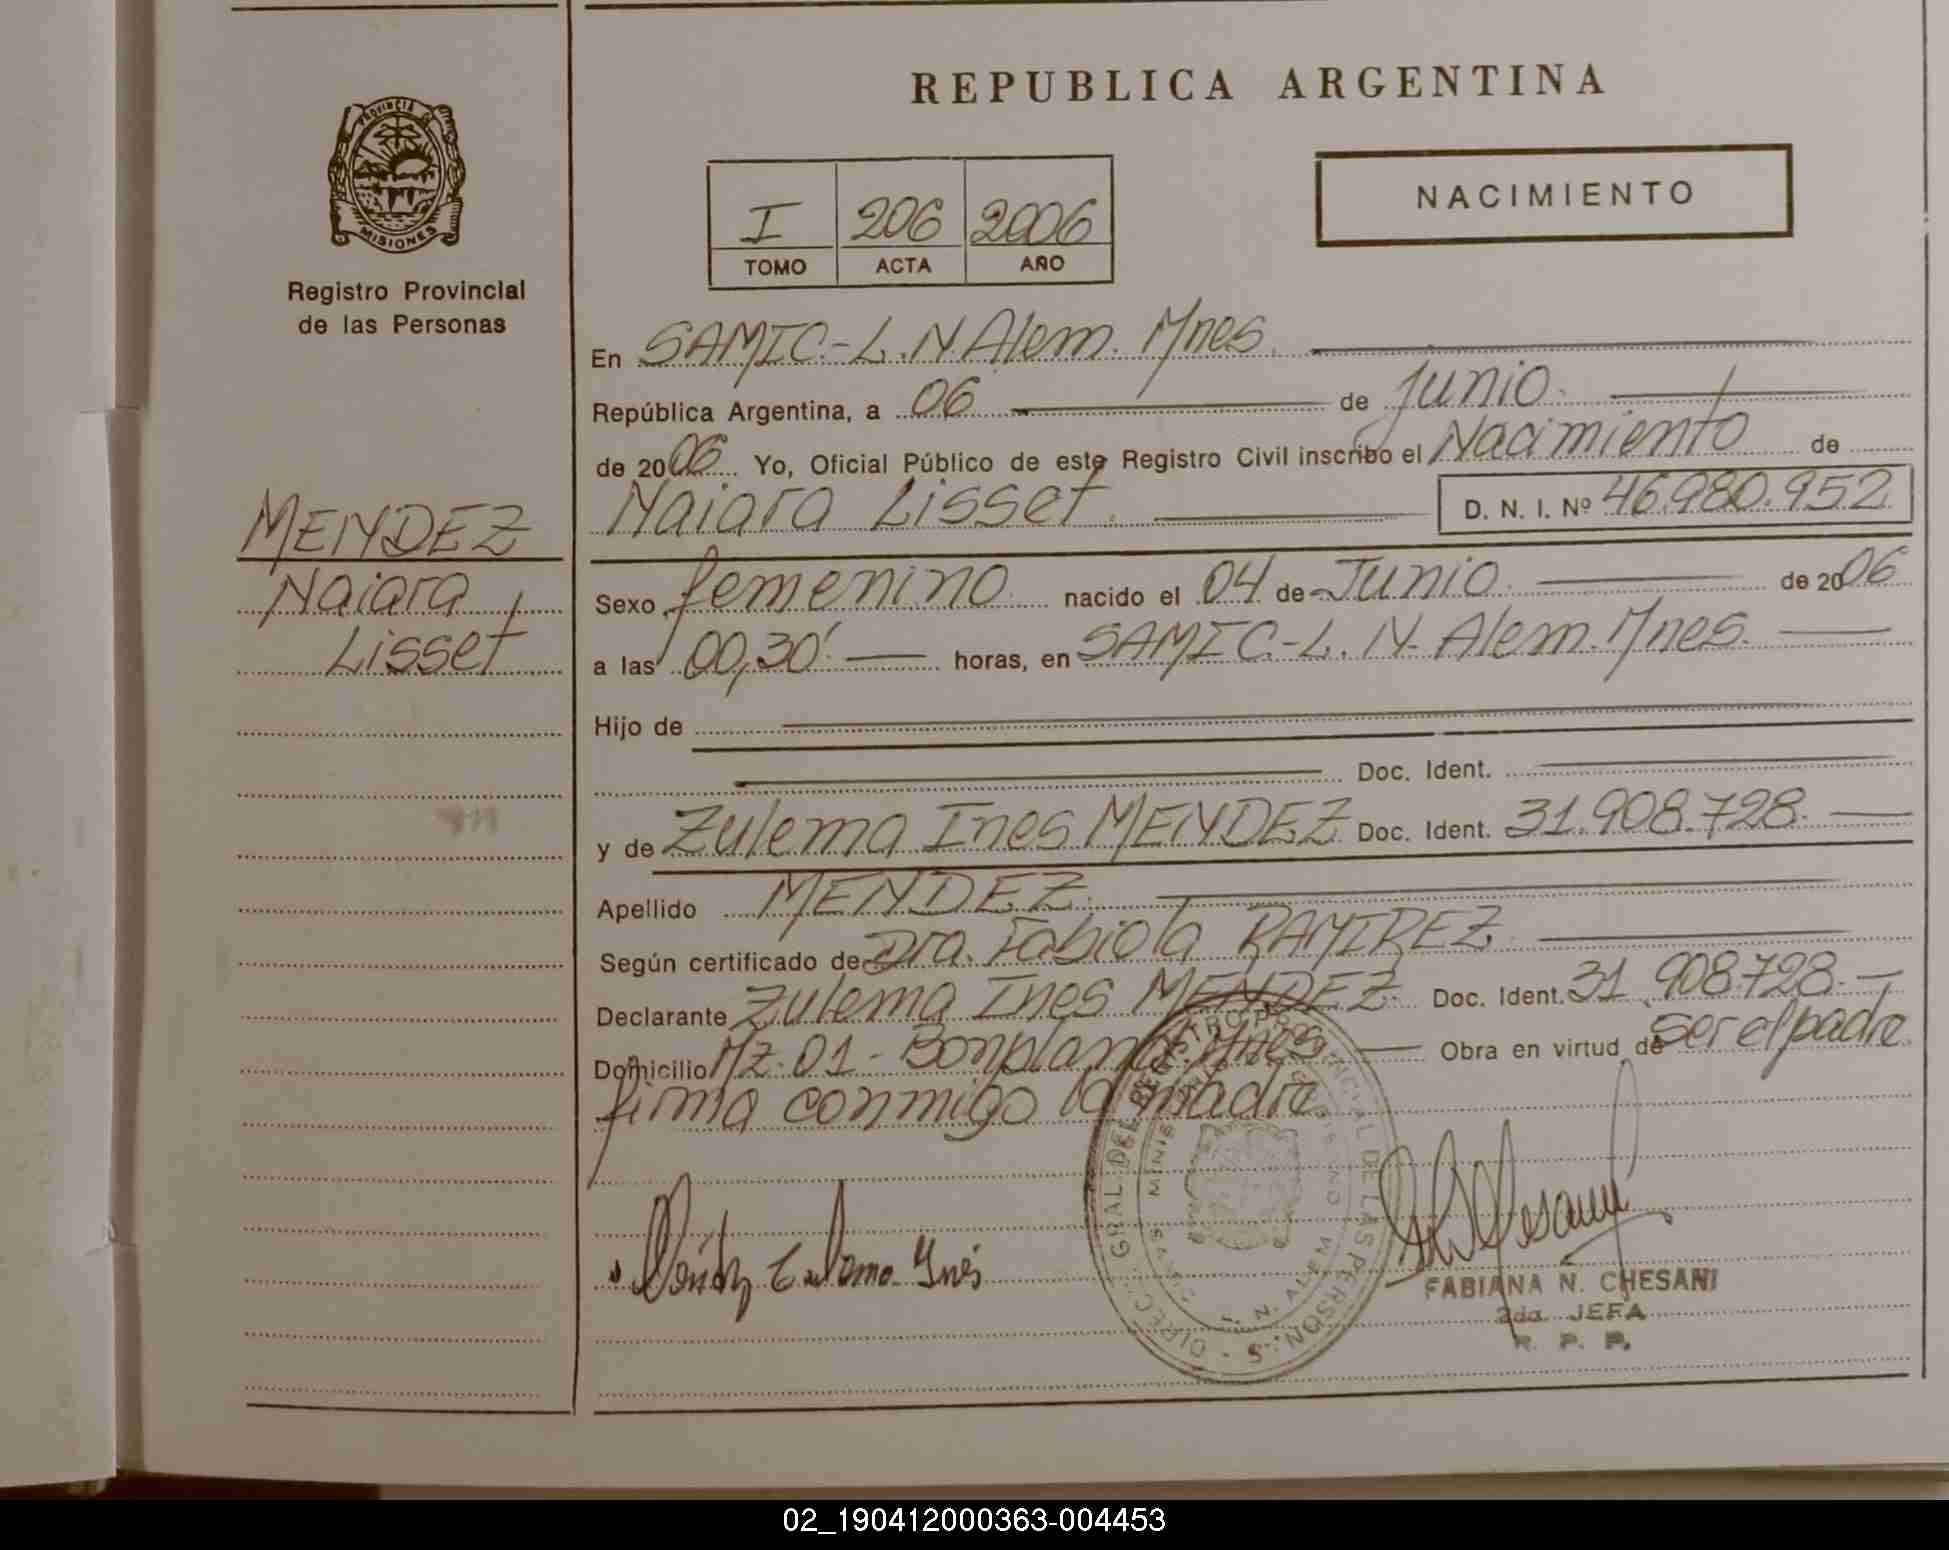 REPUBLICA ARGENTINA
PROVINCIA DE
MISIONES
Registro Provincial
de las Personas
I 206 2006
TOMO ACTA AÑO
NACIMIENTO
MENDEZ
Naiara
Lisset
En SAMIC.-L.N.Alem. Mnes.
República Argentina, a 06 de junio.
de 2006 Yo, Oficial Público de este Registro Civil inscribo el Nacimiento de
Naiara Lisset. D. N. I. Nº 46.980.952
Sexo femenino nacido el 04 de Junio. de 2006
a las 00,30' horas, en SAMIC.-L.N. Alem. Mnes.
Hijo de
Doc. Ident.
y de Zulema Ines MENDEZ Doc. Ident. 31.908.728.
Apellido MENDEZ.
Según certificado de Dra. Fabiola RAMIREZ.
Declarante Zulema Ines MENDEZ. Doc. Ident. 31.908.728.-
Domicilio Mz. 01 - Bonpland Mnes. Obra en virtud de ser el padre
firma conmigo la madre
Zulema Inés
DIREC. GRAL. DEL REGISTRO PROVINCIAL DE LAS PERSONAS
L. N. ALEM MISIONES
FABIANA N. CHESANI
2da. JEFA
R. P. P.
02_190412000363-004453